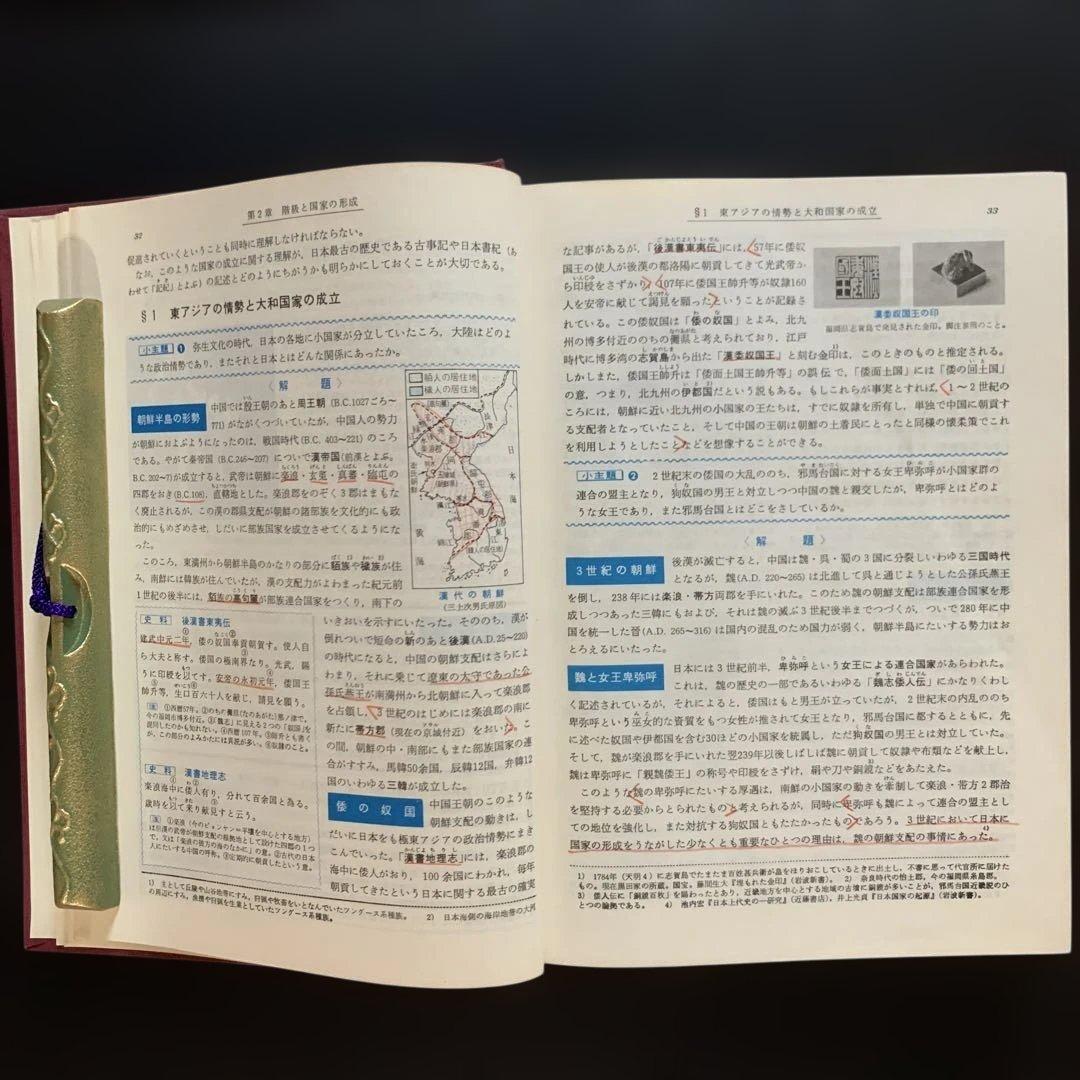 32
第2章 階級と国家の形成
促進されていくということも同時に理解しなければならない。
なお、このような国家の成立に関する理解が、日本最古の歴史である古事記や日本書紀(あ
わせて「記紀」とよぶ)の記述とどのようにちがうかも明らかにしておくことが大切である。
§1 東アジアの情勢と大和国家の成立
小主題 ❶ 弥生文化の時代、日本の各地に小国家が分立していたころ、大陸はどのよ
うな政治情勢であり、またそれと日本とはどんな関係にあったか。
〈解題〉
朝鮮半島の形勢
中国では殷王朝のあと周王朝(B.C.1027ごろ~
771)がながくつづいていたが、中国人の勢力
が朝鮮におよぶようになったのは、戦国時代(B.C. 403~221)のころ
である。やがて秦帝国(B.C.246~207)についで漢帝国(前漢とよぶ。
B.C.202~7)が成立すると、武帝は朝鮮に楽浪・玄菟・真番・臨屯の
四郡をおき(B.C.108)、直轄地とした。楽浪郡をのぞく3郡はまもな
く廃止されるが、この漢の郡県支配が朝鮮の諸部族を文化的にも政
治的にもめざめさせ、しだいに部族国家を成立させてくるようになっ
た。
このころ、東満州から朝鮮半島のかなりの部分に貊族や穢族が住
み、南鮮には韓族が住んでいたが、漢の支配力がよわまった紀元前
1世紀の後半には、貊族の高句麗が部族連合国家をつくり、南下の
貊人の居住地
穢人の居住地
日本海
黄海
漢代の朝鮮
(三上次男氏原図)
いきおいを示すにいたった。そののち、漢が
倒れついで短命の新のあと後漢(A.D. 25~220)
の時代になると、中国の朝鮮支配はさらによ
わまり、それに乗じて遼東の大守であった公
孫氏燕王が南満州から北朝鮮に入って楽浪郡
を占領し、3世紀のはじめには楽浪郡の南に
新たに帯方郡(現在の京城付近)をおいた。こ
の間、朝鮮の中・南部にもまた部族国家の連
合がすすみ、馬韓50余国、辰韓12国、弁韓12
国のいわゆる三韓が成立した。
史料 後漢書東夷伝
建武中元二年、倭の奴国奉貢朝賀す。使人自
ら大夫と称す。倭国の極南界なり。光武、賜
うに印綬を以てす。安帝の永初元年、倭国王
帥升等、生口百六十人を献じ、請見を願う。
史料 漢書地理志
楽浪海中に倭人有り、分れて百余国と為る。
歳時を以て来り献見すと云う。
倭の奴国
中国王朝のこのような
朝鮮支配の動きは、し
だいに日本をも極東アジアの政治情勢にまき
こんでいった。「漢書地理志」には、楽浪郡の
海中に倭人がおり、100余国にわかれ、毎年
朝貢してきたという日本に関する最古の確実
1) 主として丘陵や山谷地帯にすみ、狩猟や牧畜をいとなんでいたツングース系種族。 2) 日本海側の海岸地帯の大河
の周辺にすみ、漁撈や狩猟を生業としていたツングース系種族。
§1 東アジアの情勢と大和国家の成立
33
な記事があるが、「後漢書東夷伝」には、57年に倭奴
国王の使人が後漢の都洛陽に朝貢してきて光武帝か
ら印綬をさずかり、107年に倭国王帥升等が奴隷160
人を安帝に献じて謁見を願ったということが記録さ
れている。この倭奴国は「倭の奴国」とよみ、北九
州の博多付近ののちの儺県と考えられており、江戸
時代に博多湾の志賀島から出た「漢委奴国王」と刻む金印は、このときのものと推定される。
しかしまた、倭国王帥升は「倭面土国王帥升等」の誤伝で、「倭面土国」には「倭の回土国」
の意、つまり、北九州の伊都国だという説もある。もしこれらが事実とすれば、1~2世紀の
ころには、朝鮮に近い北九州の小国家の王たちは、すでに奴隷を所有し、単独で中国に朝貢す
る支配者となっていたこと、そして中国の王朝は朝鮮の土着民にとったと同様の懐柔策でこれ
を利用しようとしたことなどを想像することができる。
漢委奴国王の印
福岡県志賀島で発見された金印。脚注参照のこと。
小主題 ❷ 2世紀末の倭国の大乱ののち、邪馬台国に対する女王卑弥呼が小国家群の
連合の盟主となり、狗奴国の男王と対立しつつ中国の魏と親交したが、卑弥呼とはどのよ
うな女王であり、また邪馬台国とはどこをさしているか。
〈解題〉
3世紀の朝鮮
後漢が滅亡すると、中国は魏・呉・蜀の3国に分裂しいわゆる三国時代
となるが、魏(A.D. 220~265)は北進して呉と通じようとした公孫氏燕王
を倒し、238年には楽浪・帯方両郡を手にいれた。このため魏の朝鮮支配は部族連合国家を形
成しつつあった三韓にもおよび、それは魏の滅ぶ3世紀後半までつづくが、ついで280年に中
国を統一した晋(A.D. 265~316)は国内の混乱のため国力が弱く、朝鮮半島にたいする勢力はお
とろえるにいたった。
魏と女王卑弥呼
日本には3世紀前半、卑弥呼という女王による連合国家があらわれた。
これは、魏の歴史の一部であるいわゆる「魏志倭人伝」にかなりくわし
く記述されているが、それによると、倭国はもと男王が立っていたが、2世紀末の内乱ののち
卑弥呼という巫女的な資質をもつ女性が推されて女王となり、邪馬台国に都するとともに、先
に述べた奴国や伊都国を含む30ほどの小国家を統属し、ただ狗奴国の男王とは対立していた。
そして、魏が楽浪郡を手にいれた翌239年以後しばしば魏に朝貢して奴隷や布類などを献上し、
魏は卑弥呼に「親魏倭王」の称号や印綬をさずけ、絹や刀や銅鏡などをあたえた。
このような魏の卑弥呼にたいする厚遇は、南鮮の小国家の動きを牽制して楽浪・帯方2郡治
を堅持する必要からとられたものと考えられるが、同時に卑弥呼も魏によって連合の盟主とし
ての地位を強化し、また対抗する狗奴国ともたたかったものであろう。3世紀において日本に
国家の形成をうながした少なくとも重要なひとつの理由は、魏の朝鮮支配の事情にあった。
1) 1784年(天明4)に志賀島でたまたま百姓甚兵衛が島をほりおこしているときに出土し、不審に思って代官所に届けた
もの。現在黒田家の所蔵。国宝。藤間生大『埋もれた金印』(岩波新書)。 2) 奈良時代の怡土郡、今の福岡県糸島郡。
3) 倭人伝に「銅鏡百枚」を賜わったとあり、近畿地方を中心とする地域の古墳に銅鏡が多いことが、邪馬台国近畿説のひ
とつの論拠である。 4) 池内宏『日本上代史の一研究』(近藤書店)、井上光貞『日本国家の起源』(岩波新書)。